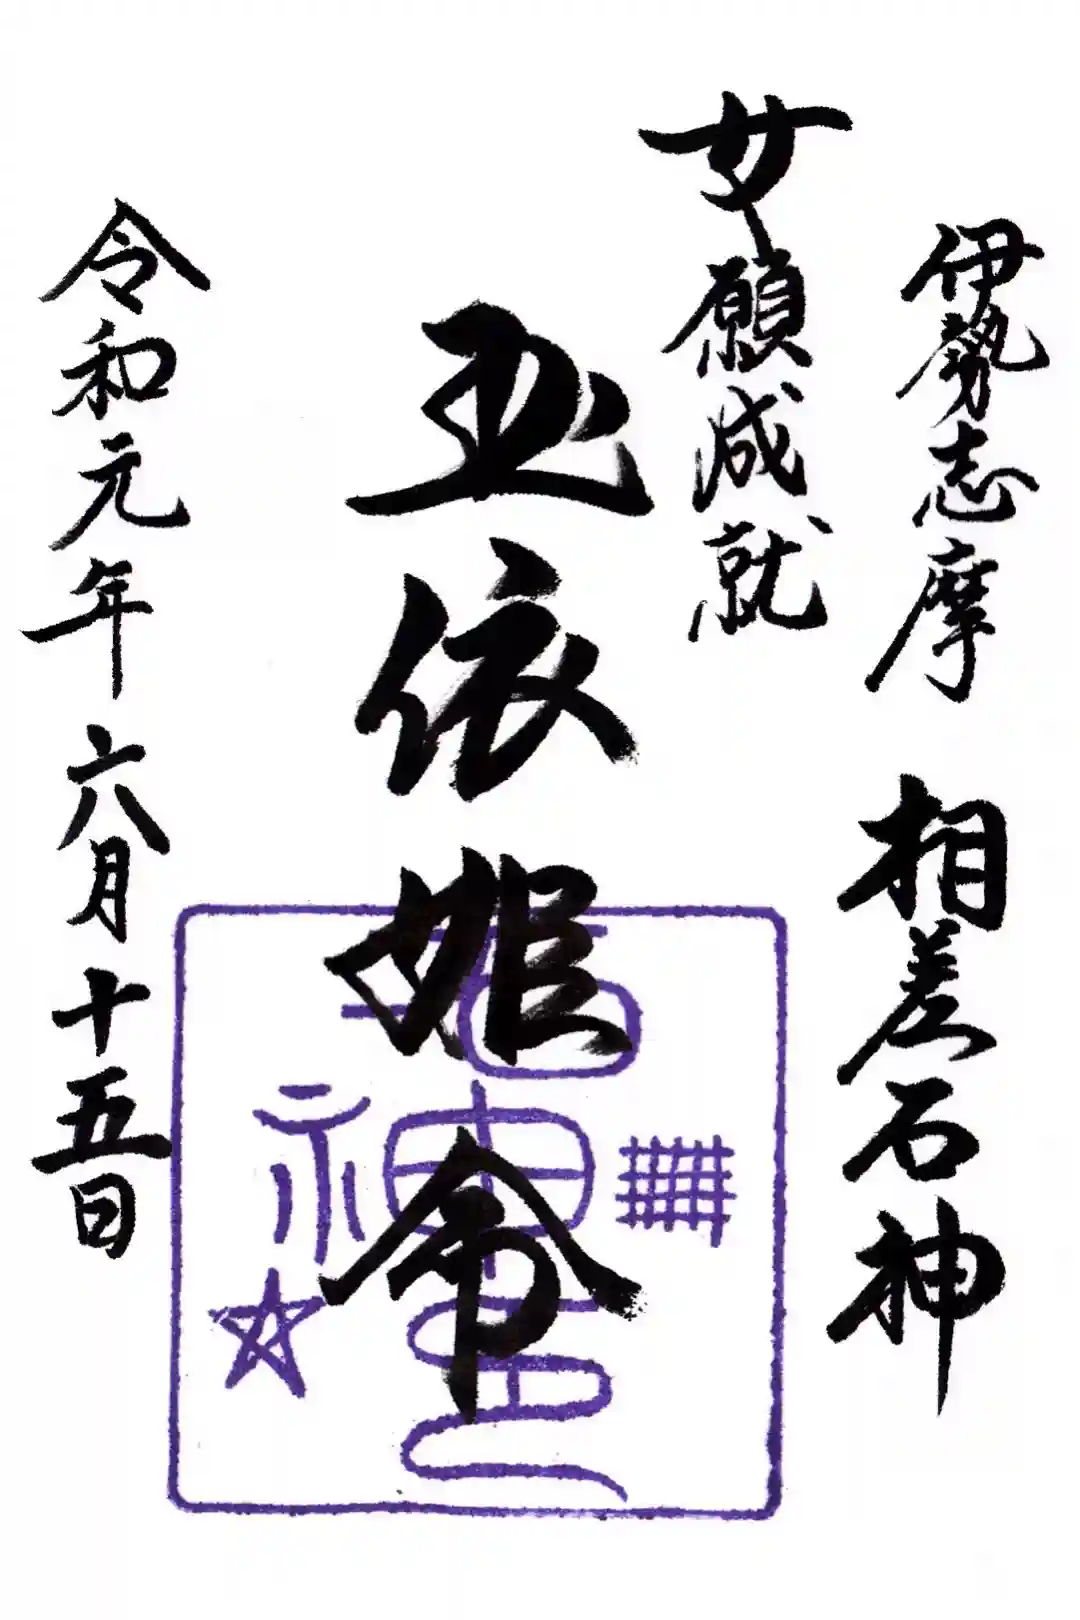 伊勢志摩 相差石神
女願成就
玉依姫命
令和元年六月十五日
石神